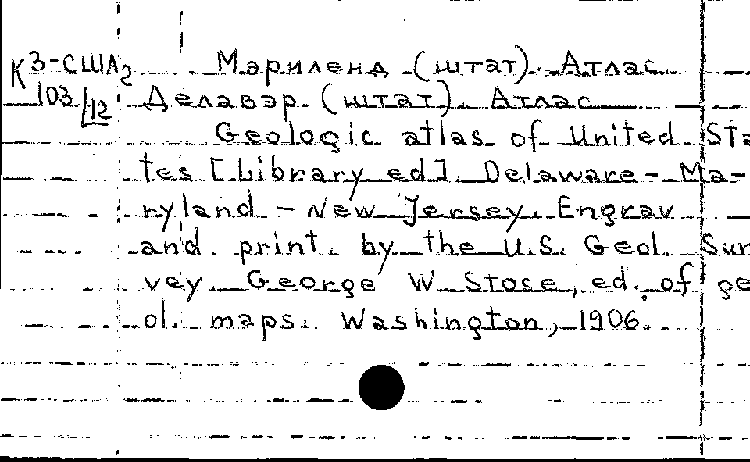 К 3-США2 Мэриленд (штат). Атлас
103/12 Делавэр (штат). Атлас
Geologic atlas of United Sta
tes [Library ed]. Delaware - Ma-
ryland - New Jersey. Engrav
and print. by the U.S. Geol. Sur
vey. George W Stose, ed. of ge
ol. maps. Washington, 1906.